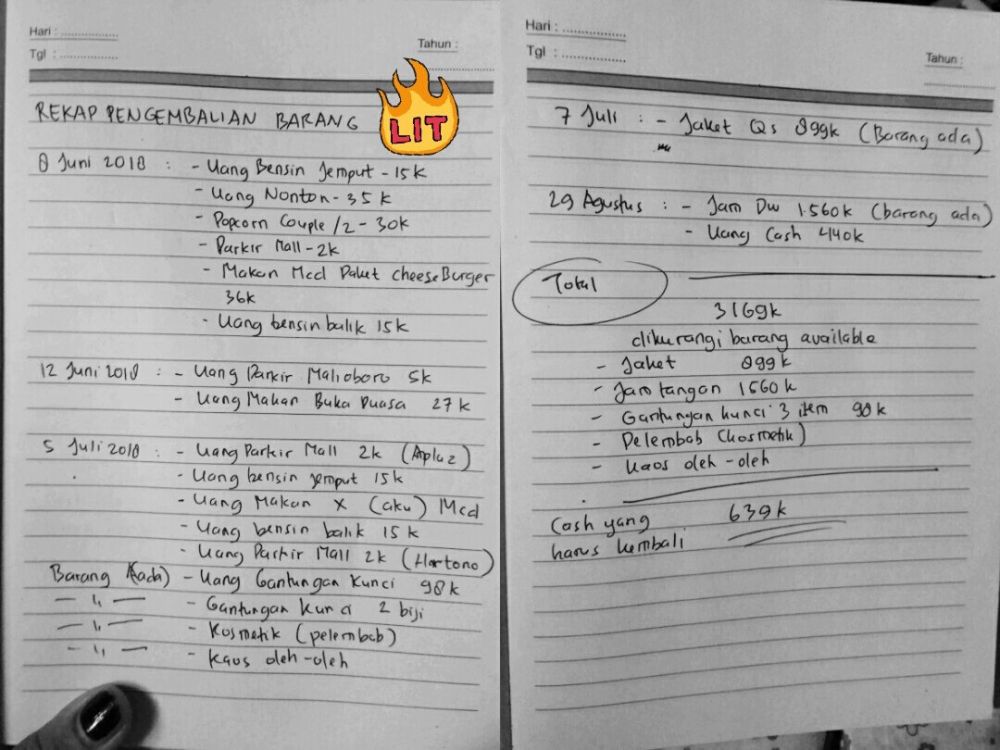 Hari : ................
Tgl : ................
Tahun :
REKAP PENGEMBALIAN BARANG
LIT
8 Juni 2018 : - Uang Bensin Jemput - 15k
- Uang Nonton - 35 k
- Popcorn Couple /2 - 30k
- Parkir Mall - 2k
- Makan Mcd Paket cheeseBurger
36k
- Uang bensin balik 15k
12 Juni 2018 : - Uang Parkir Malioboro 5k
- Uang Makan Buka Puasa 27 k
5 Juli 2018 : - Uang Parkir Mall 2k (Aplaz)
- Uang bensin jemput 15k
- Uang Makan X (aku) Mcd
- Uang bensin balik 15k
- Uang Parkir Mall 2k (Hartono)
Barang (ada) - Uang Gantungan Kunci 98k
— 11 — - Gantungan Kunci 2 biji
— 11 — - Kosmetik (pelembab)
— 11 — - Kaos oleh-oleh
Hari : ................
Tgl : ................
Tahun :
7 Juli : - Jaket Qs 899k (Barang ada)
29 Agustus : - Jam Dw 1.560k (barang ada)
- Uang Cash 440k
Total
3169k
dikurangi barang available
- Jaket 899k
- Jam tangan 1560k
- Gantungan kunci 3 item 98k
- Pelembab (kosmetik)
- Kaos oleh-oleh
Cash yang 639k
harus kembali